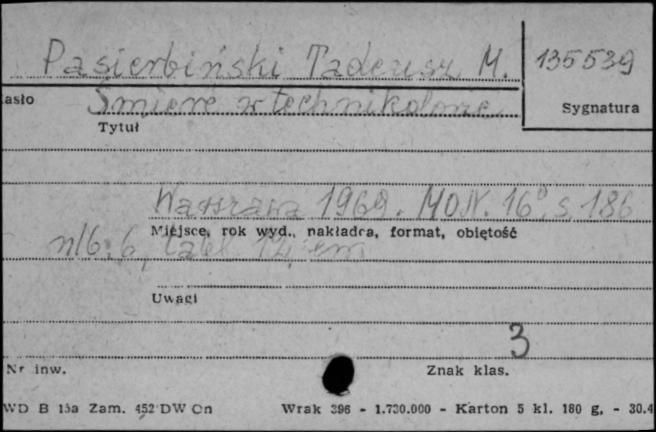 Pasierbiński Tadeusz M. 135539
asło Śmierć w technikolorze Sygnatura
Tytuł
Warszawa 1969. MON. 16°, s. 186
Miejsce, rok wyd., nakładca, format, obiętość
nlb. 6, tabl. 12, em
Uwagi
3
Nr inw. Znak klas.
WD B 15a Zam. 452 DW Cn Wrak 396 - 1.730.000 - Karton 5 kl. 180 g. - 30.4